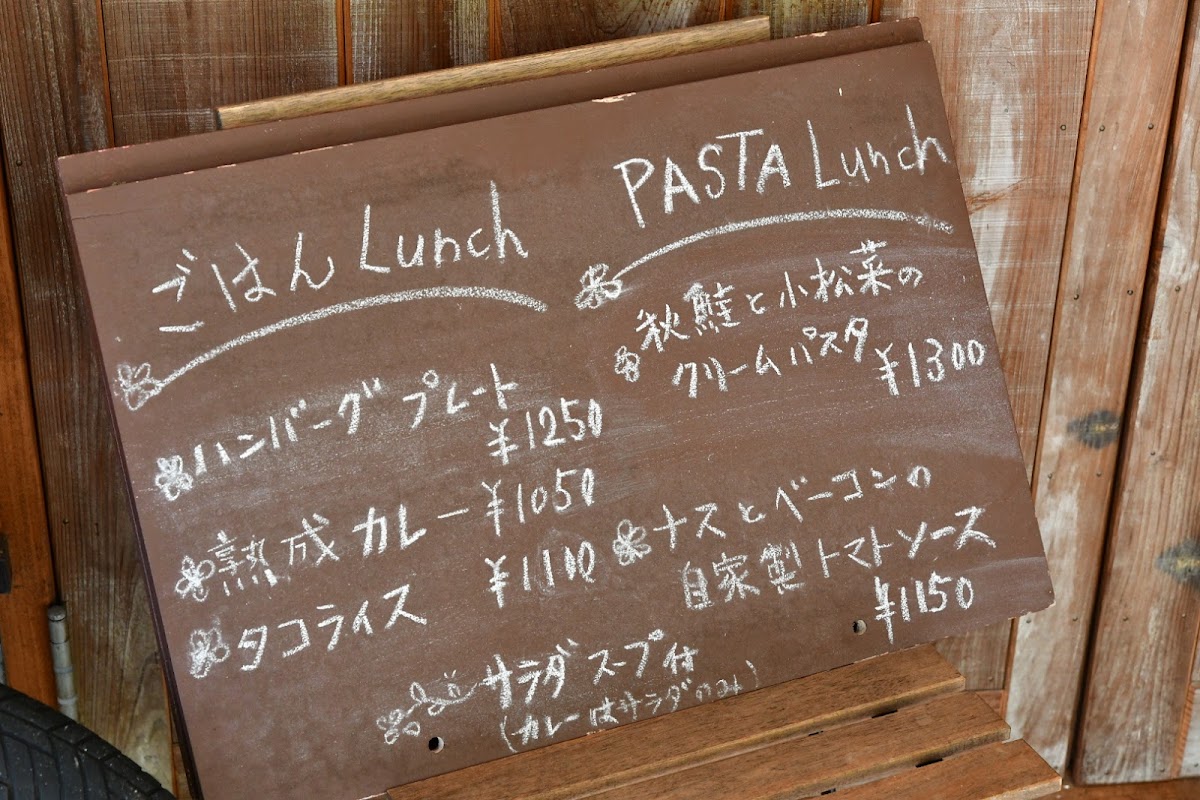 ごはん Lunch
ハンバーグ プレート
¥1250
熟成カレー ¥1050
タコライス ¥1100
PASTA Lunch
秋鮭と小松菜の
クリームパスタ
¥1300
ナスとベーコンの
自家製トマトソース
¥1150
サラダ スープ付
(カレーはサラダのみ)